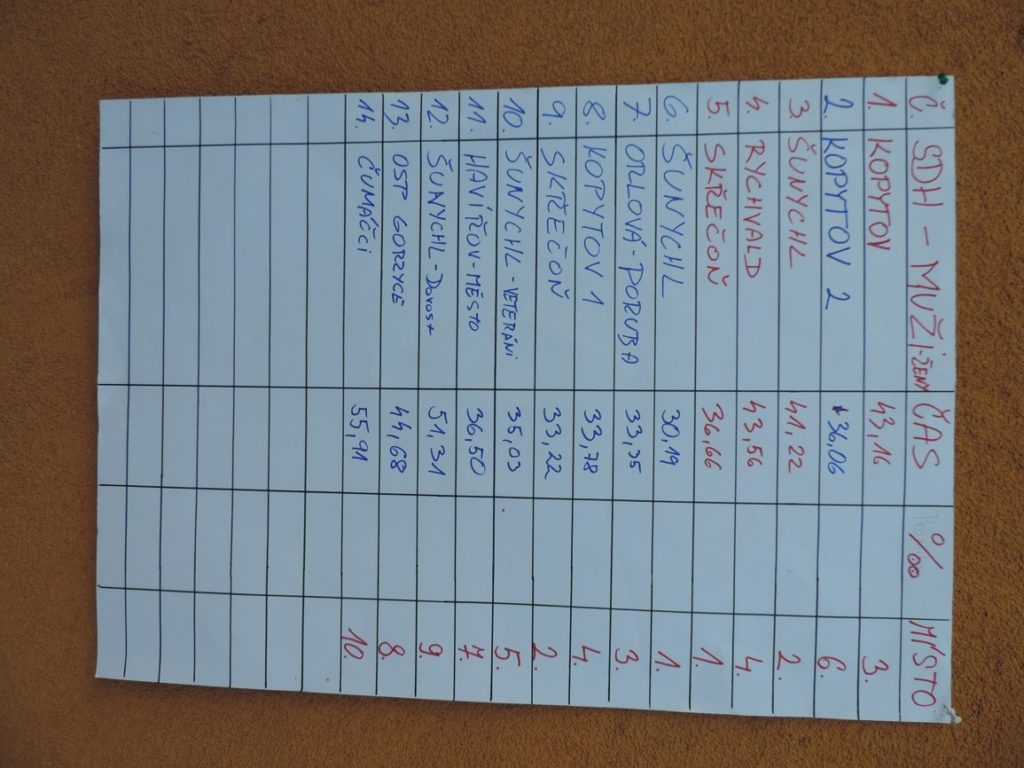 Č. SDH - MUŽI-ŽENY ČAS ‰ MÍSTO
1 KOPYTOV 43,16 3.
2. KOPYTOV 2 36,06 6.
3. ŠUNYCHL 41,22 2.
4. RYCHVALD 43,56 4.
5. SKŘEČOŇ 36,66 1.
6. ŠUNYCHL 30,19 1.
7. ORLOVÁ-PORUBA 33,75 3.
8. KOPYTOV 1 33,78 4.
9. SKŘEČOŇ 33,22 2.
10. ŠUNYCHL - VETERÁNI 35,03 5.
11. HAVÍŘOV-MĚSTO 36,50 7.
12. ŠUNYCHL - Dorost 51,31 9.
13. OSP GORZYCE 44,68 8.
14. ČUMÁČCI 55,91 10.